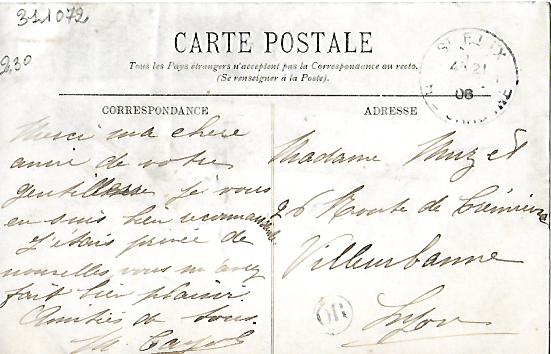 311072
230
CARTE POSTALE
Tous les Pays étrangers n'acceptent pas la Correspondance au recto.
(Se renseigner à la Poste).
CORRESPONDANCE
ADRESSE
06
Merci ma chère
amie de votre
gentillesse je vous
en suis bien reconnaissante
J'étais privée de
nouvelles vous m'avez
fait bien plaisir.
Amitiés de tous.
M.
Madame Muzet
26 Route de
Villeurbanne
Lyon
OR